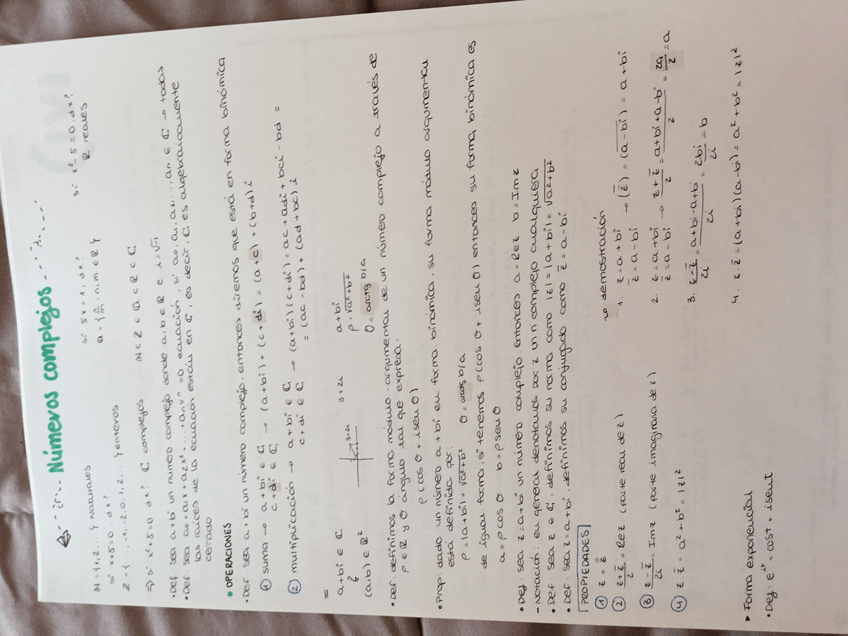 Números complejos
N = {1, 2, ... } naturales
si x+5=0, dx?
si 5x=1, dx?
si x²-5=0, dx?
Z = { ..., -1, -2, 0, 1, 2, ... } enteros
Q = { n/m , n, m ∈ Z }
R reales
si x²+5=0 dx? C complejos N ⊂ Z ⊂ Q ⊂ R ⊂ C
• Def sea a+bi un número complejo donde a, b ∈ R e i=√-1
• Def sea a₀ + a₁x + a₂x² + ... + aₙxⁿ = 0 ecuación, si a₀, a₁, a₂, ..., aₙ ∈ C → todas
las raíces de la ecuación están en C, es decir, C es algebraicamente
cerrado
• OPERACIONES
• Def. sea a+bi un número complejo, entonces diremos que está en forma binómica
① suma → a+bi ∈ C → (a+bi) + (c+di) = (a+c) + (b+d)i
c+di ∈ C
② multiplicación → a+bi ∈ C → (a+bi)(c+di) = ac + adi + bci - bd =
c+di ∈ C = (ac-bd) + (ad+bc)i
=
a+bi ∈ C
(a,b) ∈ R²
3+2i
3+2i
a+bi
ρ = √a²+b²
θ = arctg b/a
• Def. definimos la forma módulo-argumental de un número complejo a través de
ρ ∈ R y θ ángulo tal que expresa:
ρ(cos θ + i sen θ)
• Prop. dado un número a+bi en forma binómica, su forma módulo argumental
está definida por:
ρ = |a+bi| = √a²+b² θ = arctg b/a
de igual forma, si tenemos ρ(cos θ + i sen θ) entonces su forma binómica es
a = ρ cos θ b = ρ sen θ
• Def sea z = a+bi un número complejo, entonces a = Re z b = Im z
- Notación: en general denotamos por z un complejo cualquiera
• Def sea z ∈ C, definimos su norma como |z| = |a+bi| = √a²+b²
• Def: sea z = a+bi definimos su conjugado como z̄ = a-bi
PROPIEDADES
① z = z̿
② (z+z̄)/2 = Re z (parte real de z)
③ (z-z̄)/2i = Im z (parte imaginaria de z)
④ z z̄ = a²+b² = |z|²
demostración
1. z = a+bi → (z̿) = (a-bi) = a+bi
z̄ = a-bi
2. z = a+bi → (z+z̄)/2 = (a+bi+a-bi)/2 = 2a/2 = a
z̄ = a-bi
3. (z-z̄)/2i = (a+bi-a+bi)/2i = 2bi/2i = b
4. z·z̄ = (a+bi)(a-bi) = a²+b² = |z|²
• Forma exponencial
• Def. eⁱᵗ = cos t + i sen t